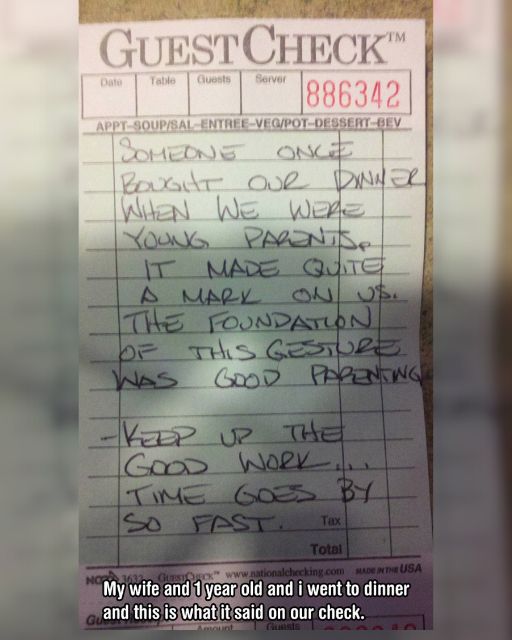 GUEST CHECK™
Date Table Guests Server 886342
APPT-SOUP/SAL-ENTREE-VEG/POT-DESSERT-BEV
SOMEONE ONCE
BOUGHT OUR DINNER
WHEN WE WERE
YOUNG PARENTS.
IT MADE QUITE
A MARK ON US.
THE FOUNDATION
OF THIS GESTURE
WAS GOOD PARENTING
-KEEP UP THE
GOOD WORK...
TIME GOES BY
SO FAST. Tax
Total
GUESTCHECK™ www.nationalchecking.com MADE IN THE USA
My wife and 1 year old and i went to dinner
and this is what it said on our check.
Amount Guests